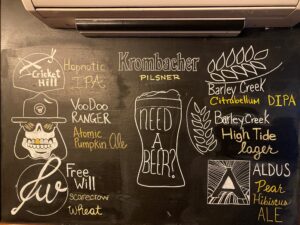 Cricket
Hill
Hopnotic
IPA
Krombacher
PILSNER
Barley Creek
Citrabellum DIPA
VooDoo
RANGER
Atomic
Pumpkin Ale
NEED
A
BEER?
Barley Creek
High Tide
lager
fw
Free
Will
scarecrow
Wheat
ALDUS
Pear
Hibiscus
ALE